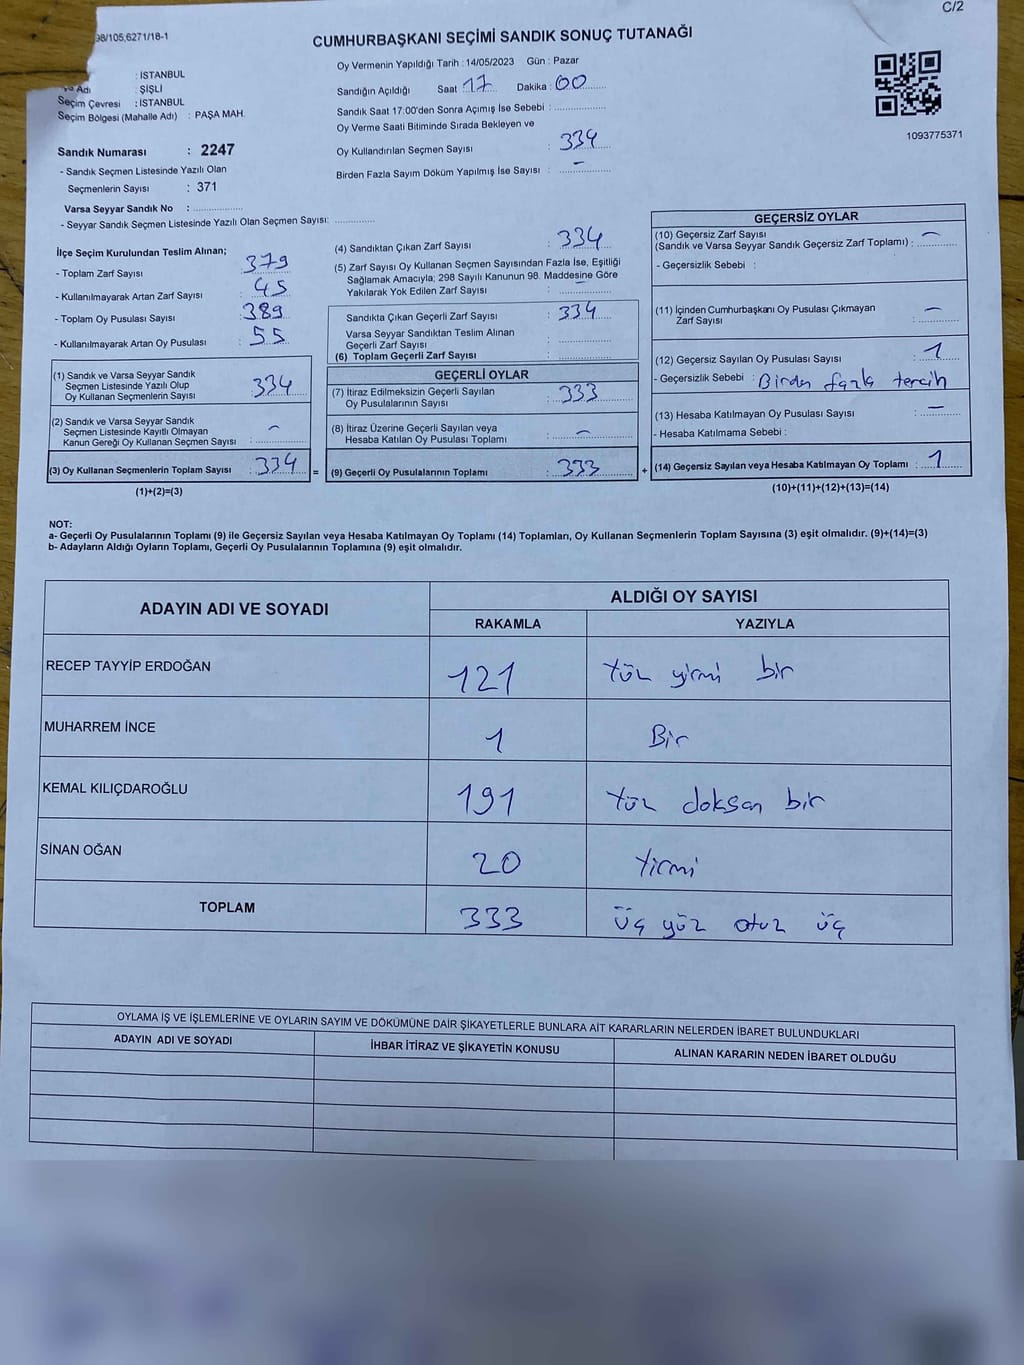 C/2
98/105,6271/18-1
CUMHURBAŞKANI SEÇİMİ SANDIK SONUÇ TUTANAĞI
: İSTANBUL
Adı : ŞİŞLİ
Seçim Çevresi : İSTANBUL
Seçim Bölgesi (Mahalle Adı) : PAŞA MAH.
Oy Vermenin Yapıldığı Tarih : 14/05/2023 Gün : Pazar
Sandığın Açıldığı Saat 17 Dakika : 00
Sandık Saat 17:00'den Sonra Açımış İse Sebebi :
Oy Verme Saati Bitiminde Sırada Bekleyen ve
Oy Kullandırılan Seçmen Sayısı : 334
Birden Fazla Sayım Döküm Yapılmış İse Sayısı : -
1093775371
Sandık Numarası : 2247
- Sandık Seçmen Listesinde Yazılı Olan
Seçmenlerin Sayısı : 371
Varsa Seyyar Sandık No :
- Seyyar Sandık Seçmen Listesinde Yazılı Olan Seçmen Sayısı:
İlçe Seçim Kurulundan Teslim Alınan;
- Toplam Zarf Sayısı : 379
- Kullanılmayarak Artan Zarf Sayısı : 45
- Toplam Oy Pusulası Sayısı : 389
- Kullanılmayarak Artan Oy Pusulası : 55
(1) Sandık ve Varsa Seyyar Sandık
Seçmen Listesinde Yazılı Olup
Oy Kullanan Seçmenlerin Sayısı : 334
(2) Sandık ve Varsa Seyyar Sandık
Seçmen Listesinde Kayıtlı Olmayan
Kanun Gereği Oy Kullanan Seçmen Sayısı : -
(3) Oy Kullanan Seçmenlerin Toplam Sayısı : 334 =
(1)+(2)=(3)
(4) Sandıktan Çıkan Zarf Sayısı : 334
(5) Zarf Sayısı Oy Kullanan Seçmen Sayısından Fazla İse, Eşitliği
Sağlamak Amacıyla; 298 Sayılı Kanunun 98. Maddesine Göre
Yakılarak Yok Edilen Zarf Sayısı : -
Sandıkta Çıkan Geçerli Zarf Sayısı : 334
Varsa Seyyar Sandıktan Teslim Alınan
Geçerli Zarf Sayısı :
(6) Toplam Geçerli Zarf Sayısı :
GEÇERLİ OYLAR
(7) İtiraz Edilmeksizin Geçerli Sayılan
Oy Pusulalarının Sayısı : 333
(8) İtiraz Üzerine Geçerli Sayılan veya
Hesaba Katılan Oy Pusulası Toplamı : -
(9) Geçerli Oy Pusulalarının Toplamı : 333 +
GEÇERSİZ OYLAR
(10) Geçersiz Zarf Sayısı
(Sandık ve Varsa Seyyar Sandık Geçersiz Zarf Toplamı) : -
- Geçersizlik Sebebi :
(11) İçinden Cumhurbaşkanı Oy Pusulası Çıkmayan
Zarf Sayısı : -
(12) Geçersiz Sayılan Oy Pusulası Sayısı : 1
- Geçersizlik Sebebi : Birden fazla tercih
(13) Hesaba Katılmayan Oy Pusulası Sayısı : -
- Hesaba Katılmama Sebebi :
(14) Geçersiz Sayılan veya Hesaba Katılmayan Oy Toplamı : 1
(10)+(11)+(12)+(13)=(14)
NOT:
a- Geçerli Oy Pusulalarının Toplamı (9) ile Geçersiz Sayılan veya Hesaba Katılmayan Oy Toplamı (14) Toplamları, Oy Kullanan Seçmenlerin Toplam Sayısına (3) eşit olmalıdır. (9)+(14)=(3)
b- Adayların Aldığı Oyların Toplamı, Geçerli Oy Pusulalarının Toplamına (9) eşit olmalıdır.
ADAYIN ADI VE SOYADI ALDIĞI OY SAYISI
RAKAMLA YAZIYLA
RECEP TAYYİP ERDOĞAN 121 Yüz yirmi bir
MUHARREM İNCE 1 Bir
KEMAL KILIÇDAROĞLU 191 Yüz doksan bir
SİNAN OĞAN 20 Yirmi
TOPLAM 333 Üç yüz otuz üç
OYLAMA İŞ VE İŞLEMLERİNE VE OYLARIN SAYIM VE DÖKÜMÜNE DAİR ŞİKAYETLERLE BUNLARA AİT KARARLARIN NELERDEN İBARET BULUNDUKLARI
ADAYIN ADI VE SOYADI İHBAR İTİRAZ VE ŞİKAYETİN KONUSU ALINAN KARARIN NEDEN İBARET OLDUĞU